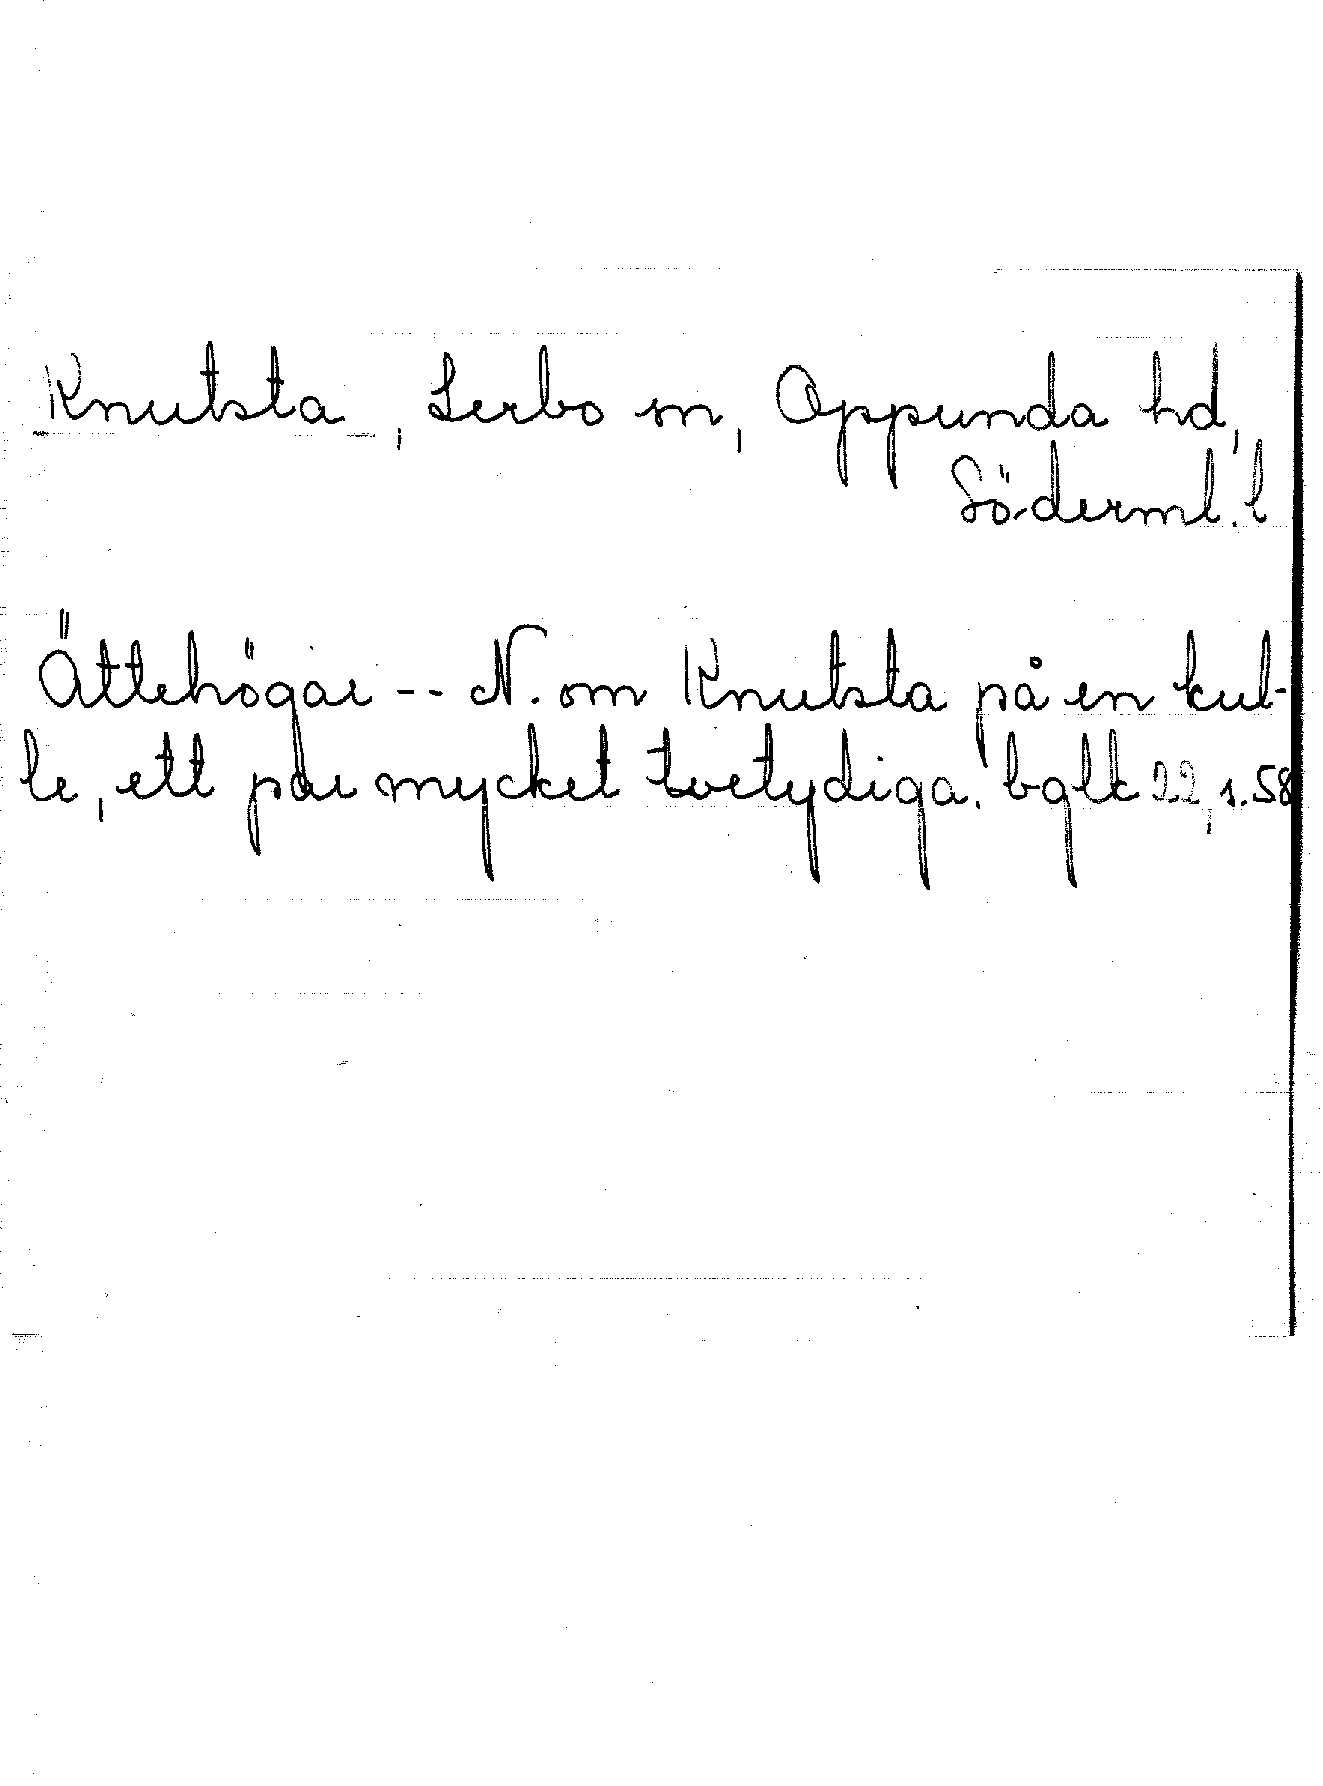 Knutsta, Lerbo sn, Oppunda hd,
Söderml. l
Ättehögar -- N. om Knutsta på en kul-
le, ett par mycket tvetydiga. bglk 22, s. 58